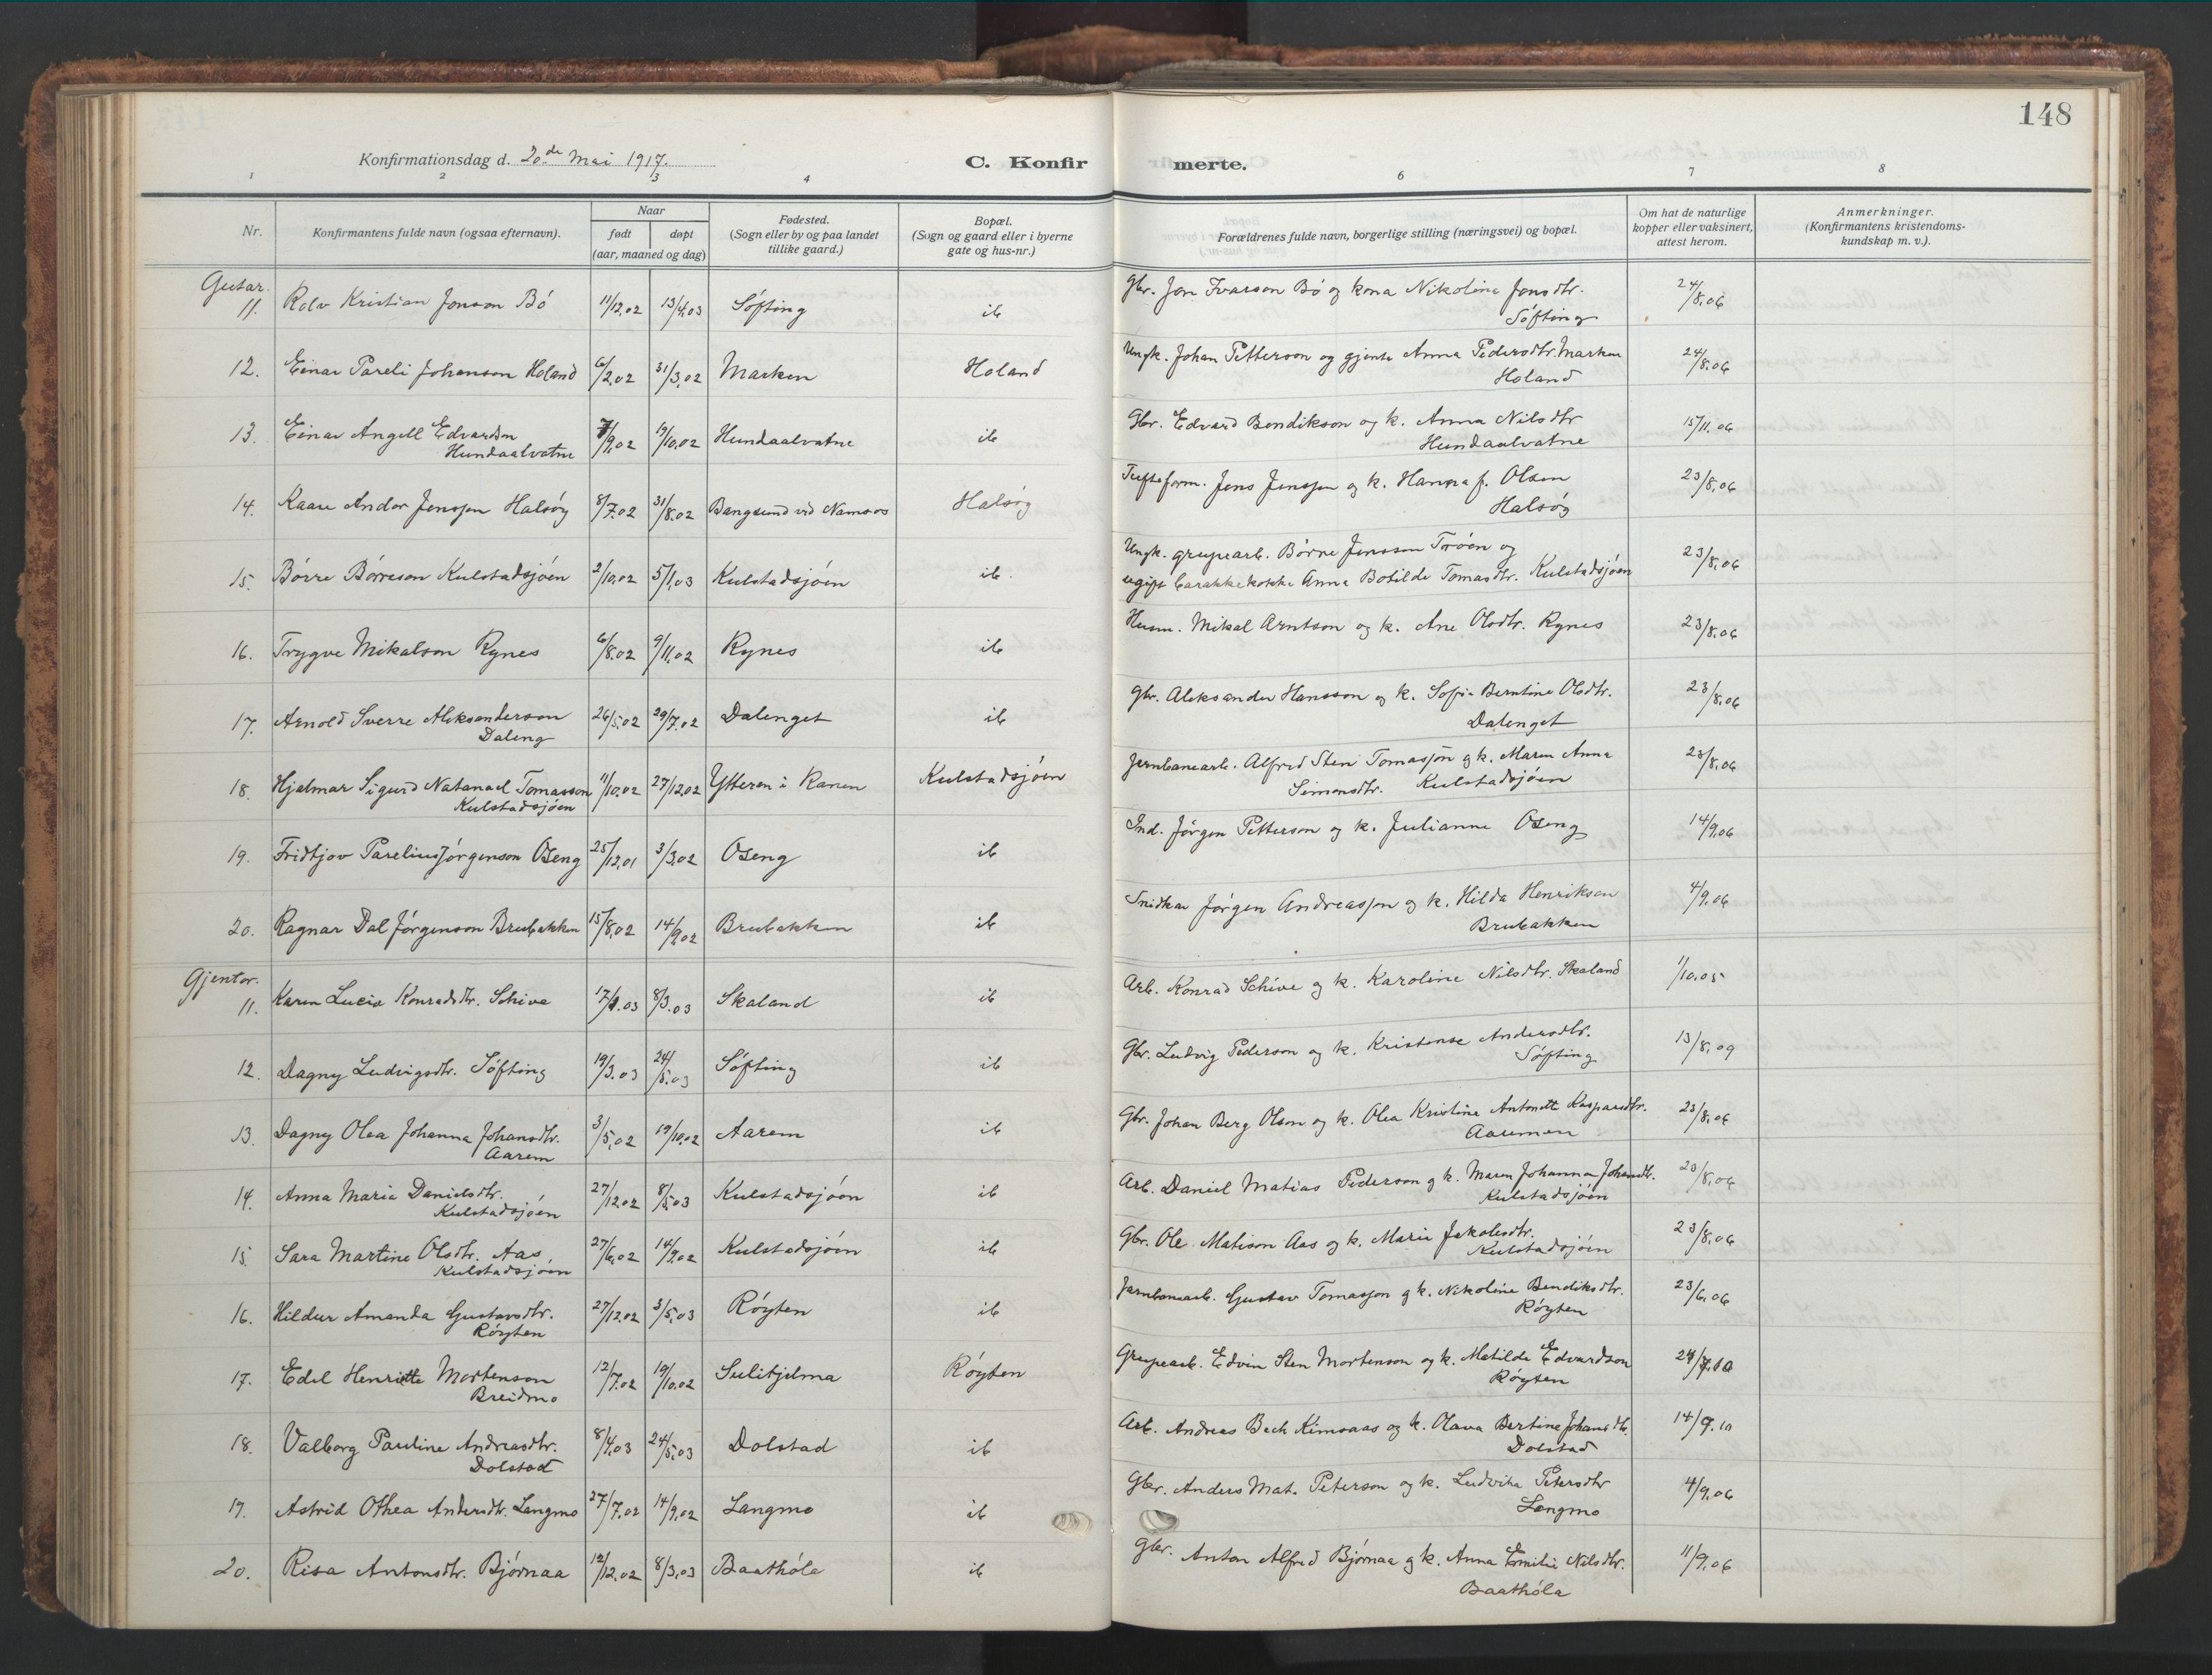 148
Konfirmationsdag d. 20.de Mai 1917.
C. Konfirmerte.
1 2 3 4 6 7 8
Nr.
Konfirmantens fulde navn (ogsaa efternavn).
Naar
født døpt
(aar, maaned og dag)
Fødested.
(Sogn eller by og paa landet
tillike gaard.)
Bopæl.
(Sogn og gaard eller i byerne
gate og hus-nr.)
Forældrenes fulde navn, borgerlige stilling (næringsvei) og bopæl.
Om hat de naturlige
kopper eller vaksinert,
attest herom.
Anmerkninger.
(Konfirmantens kristendoms-
kundskap m. v.).
Gutar.
11. Rolv Kristian Jonson Bö 11/12.02 13/4.03 Söfting ib Gbr. Jon Ivarson Bö og kona Nikolina Jonsdtr. 24/8.06
Söfting
12. Einar Pareli Johanson Holand 6/2.02 31/3.02 Marken Holand Ungk. Johan Petterson og gjenta Anna Pedersdtr. Marken 24/8.06
Holand
13. Einar Angell Edvardson 7/9.02 19/10.02 Hundaalvatne ib Gbr. Edvard Bendikson og k. Anna Nilsdtr 15/11.06
Hundaalvatne Hundaalvatne
14. Kaare Andor Jenssen Halsöy 8/7.02 31/8.02 Bangsund vid Namsos Halsöy Tufteform. Jens Jenssen og k. Hanna f. Olsen 23/8.06
Halsöy
15. Börre Börreson Kulstadsjöen 2/10.02 5/1.03 Kulstadsjöen ib. Ungk. gruvearb. Börre Jensson Troöen og 23/8.06
ugift barakkekokke Anna Botilde Tomasdtr. Kulstadsjöen
16. Trygve Mikalson Rynes 6/8.02 9/11.02 Rynes ib Husm. Mikal Arntson og k. Ane Olsdtr. Rynes 23/8.06
17. Arnold Sverre Aleksanderson 26/5.02 29/7.02 Dalenget ib Gbr. Aleksander Hansson og k. Sofie Berntine Olsdtr. 23/8.06
Daleng Dalenget
18. Hjalmar Sigurd Natanael Tomasson 11/10.02 27/12.02 Ytteren i Ranen Kulstadsjöen Jernbanearb. Alfred Sten Tomasson og k. Maren Anna 23/8.06
Kulstadsjöen Simonsdtr. Kulstadsjöen
19. Fridtjov Parelius Jörgenson Oseng 25/12.01 3/3.02 Oseng ib Ind. Jörgen Petterson og k. Julianne Oseng 14/9.06
20. Ragnar Dal Jörgenson Brubakken 15/8.02 14/9.02 Brubakken ib Snidkar Jörgen Andreassen og k. Hilda Henrikson 4/9.06
Brubakken
Gjentor.
11. Karen Lucie Konradsdtr. Schive 17/1.03 8/3.03 Skaland ib Arb. Konrad Schive og k. Karoline Nilsdtr. Skaland 1/10.05
12. Dagny Ludvigsdtr. Söfting 19/3.03 24/5.03 Söfting ib Gbr. Ludvig Pederson og k. Kristense Andersdtr. 13/8.09
Söfting
13. Dagny Olea Johanna Johansdtr. 3/5.02 19/10.02 Aarem ib Gbr. Johan Berg Olson og k. Olea Kristine Antonette Kasparsdtr. 23/8.06
Aarem Aaremen
14. Anna Marie Danielsdtr. 27/12.02 8/5.03 Kulstadsjöen ib Arb. Daniel Matias Pederson og k. Maren Johanna Johansdtr. 23/8.06
Kulstadsjöen Kulstadsjöen
15. Sara Martine Olsdtr. Aas, 27/6.02 14/9.02 Kulstadsjöen ib Gbr. Ole Matison Aas og k. Marie Jakobsdtr. 23/8.06
Kulstadsjöen Kulstadsjöen
16. Hildur Amanda Gustavsdtr. 27/12.02 3/5.03 Röyten ib Jarnbanearb. Gustav Tomasson og k. Nikoline Bendiksdtr. 23/6.06
Röyten Röyten
17. Edel Henriette Mortenson 12/7.02 19/10.02 Sulitjelma Röyten Gruvearb. Edvin Sten Mortenson og k. Matilde Edvardson 24/7.10
Breidmo Röyten
18. Valborg Pauline Andreasdtr. 8/4.03 24/5.03 Dolstad ib Arb. Andreas Bech Kimsaas og k. Olava Bertine Johansdtr. 14/9.10
Dolstad Dolstad
19. Astrid Othea Andersdtr. Langmo 27/7.02 14/9.02 Langmo ib Gbr. Anders Mat. Peterson og k. Ludvika Petersdtr 4/9.06
Langmo
20. Risa Antonsdtr. Björnaa 12/12.02 8/3.03 Baathöla ib Gbr. Anton Alfred Björnaa og k. Anna Emilie Nilsdtr. 11/9.06
Baathöla